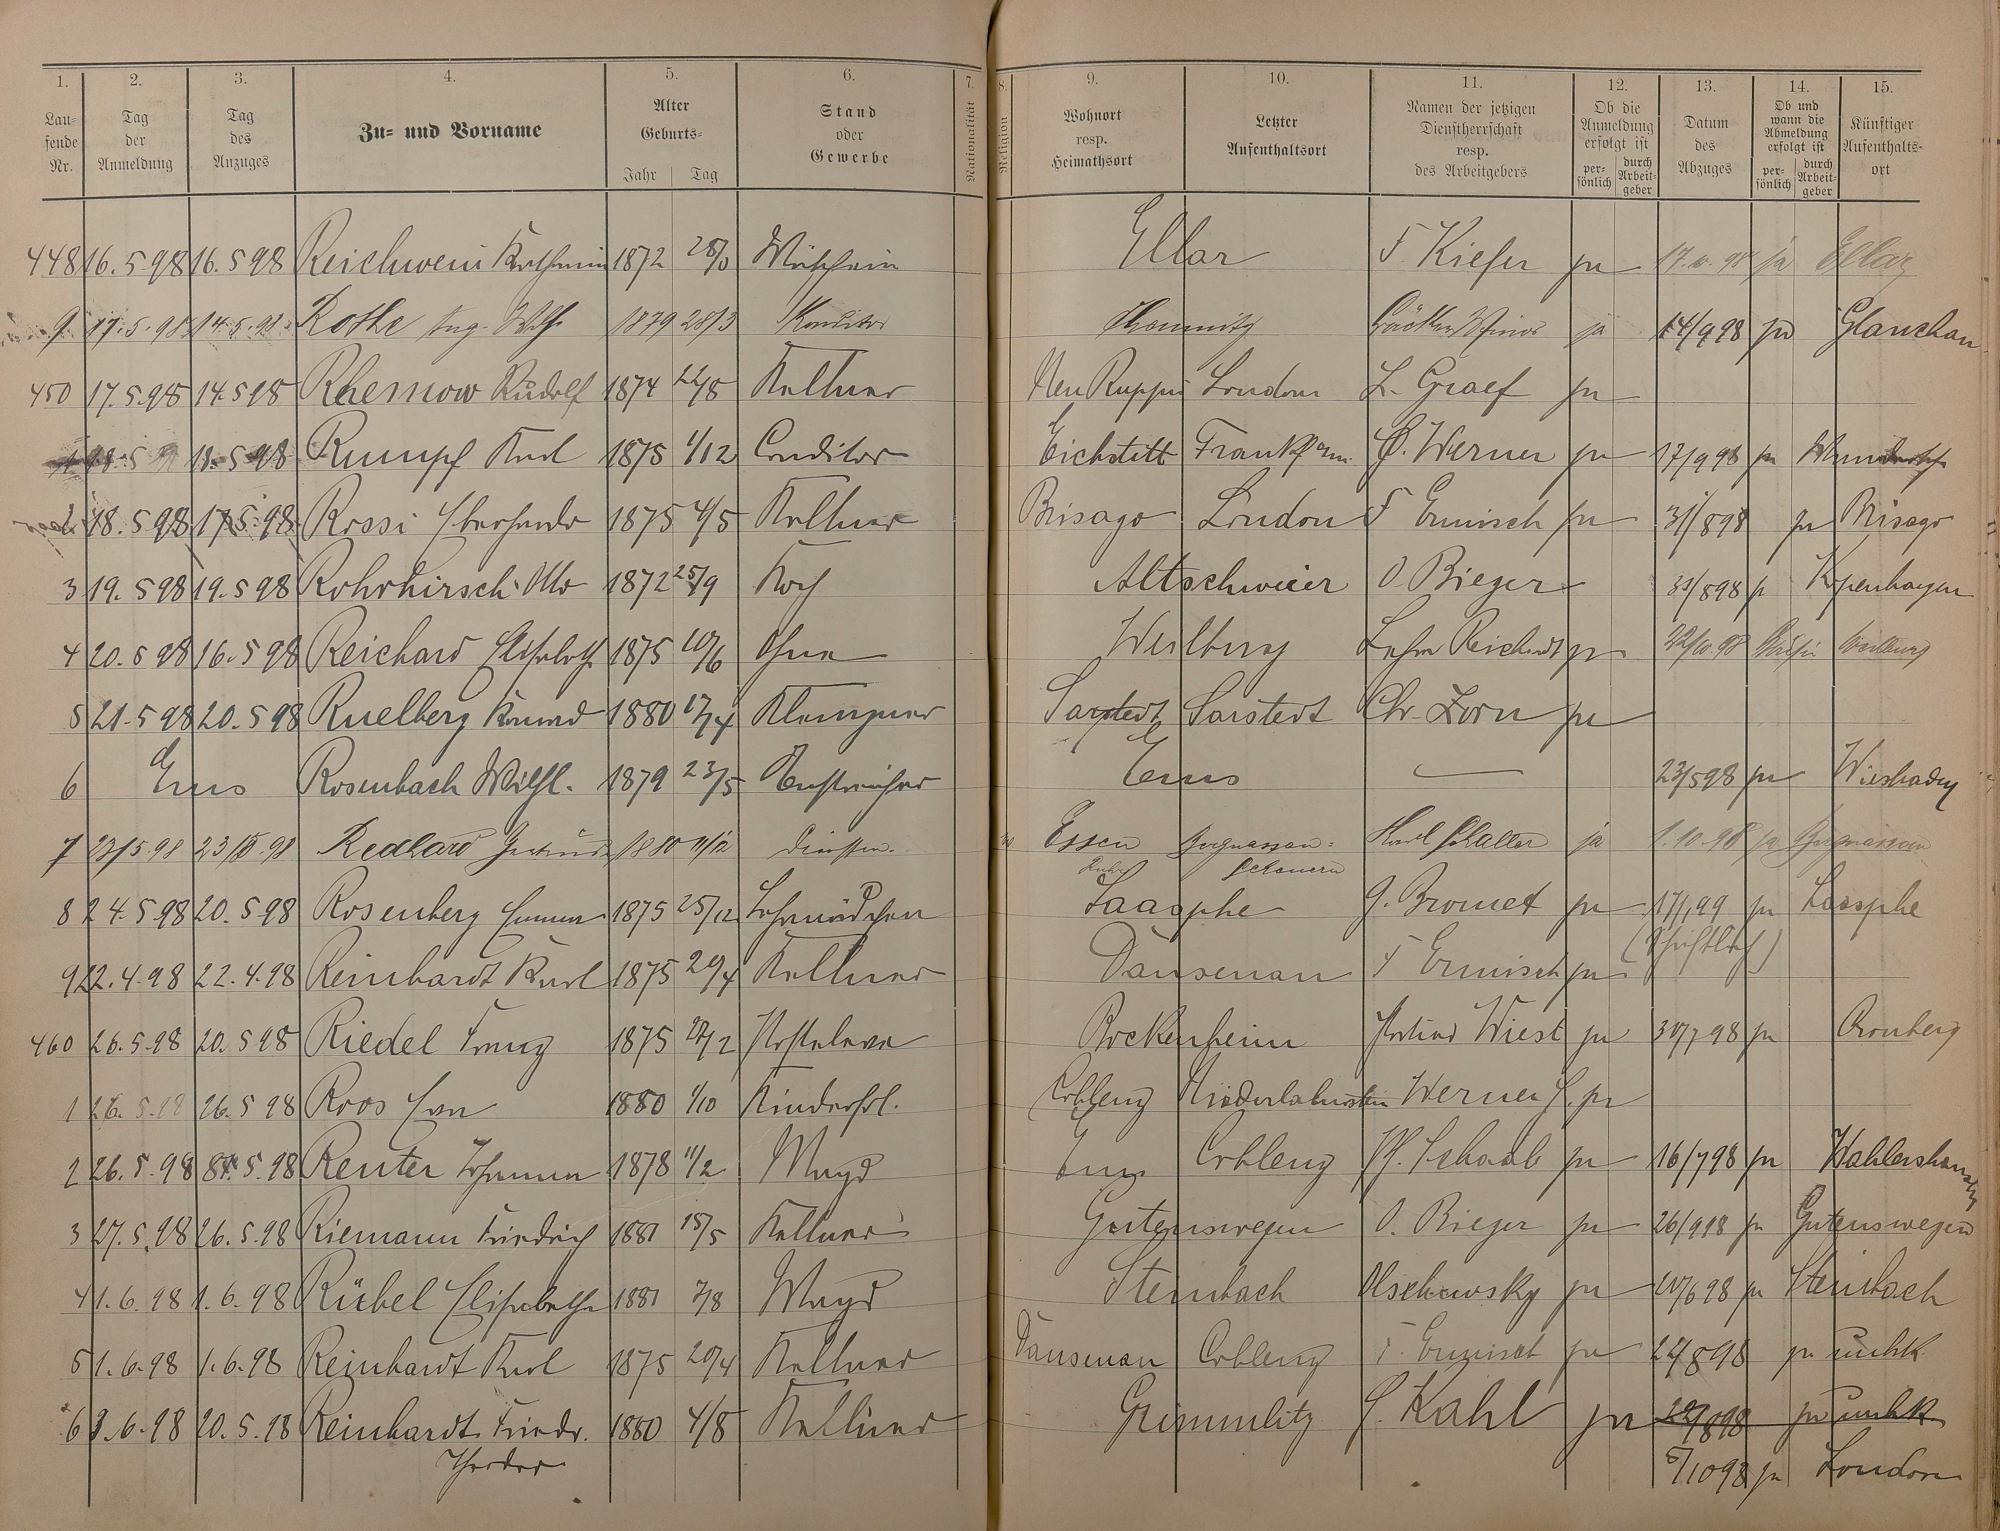 1. 2. 3. 4. 5. 6. 7. 8. 9. 10. 11. 12. 13. 14. 15.
Laufende Nr. Tag der Anmeldung Tag des Anzuges Zu= und Vorname Alter Geburts= Jahr Tag Stand oder Gewerbe Nationalität Religion Wohnort resp. Heimathsort Letzter Aufenthaltsort Namen der jetzigen Dienstherrschaft resp. des Arbeitgebers Ob die Anmeldung erfolgt ist persönlich durch Arbeitgeber Datum des Abzuges Ob und wann die Abmeldung erfolgt ist persönlich durch Arbeitgeber Künftiger Aufenthaltsort
448 16.5.98 16.5.98 Reichwein 1872 Ellar F Kiefer ja ja Ellar
9 17.5.98 14.5.98 Rothe Aug. Wilh. 1879 28/3 Konditor ja 14/9 98 ja Glauchau
450 17.5.98 14.5.98 Rhemow Rudolf 1874 22/8 Kellner Neu Ruppin London L. Graef ja
18.5.98 Rumpf Karl 1875 1/12 Conditor Eichstett Frankf a/m. Werner ja 17/9 98 ja
2 18.5.98 17.5.98 Rossi 1875 4/5 Kellner Brisago London F Ermisch ja 31/8 98 ja Brisago
3 19.5.98 19.5.98 Rohrhirsch Otto 1872 25/9 Koch Altschweier O Bieger 31/8 98 ja Kopenhagen
4 20.5.98 16.5.98 Reichard Elisabeth 1875 10/6 Ohne Weilburg Reichard ja 22/10 98 Weilburg
5 21.5.98 20.5.98 Ruelberg Konrad 1880 17/4 Klempner Sarstedt Sarstedt Chr. Zorn ja
6 Ems Rosenbach Wilh. 1879 23/5 Ems — 23/5 98 ja Wiesbaden
7 23/5.98 23/5.98 Redlard 1880 11/12 Dienstm. Essen Ruhr Karl Schaller ja 1.10.98 ja
8 24.5.98 20.5.98 Rosenberg Emma 1875 25/12 Lehrmädchen Laasphe G. Bromet ja 17/1 99 ja Laasphe
(Schriftlich)
9 22.4.98 22.4.98 Reinhardt Karl 1875 20/4 Kellner Dausenau F Ermisch ja
460 26.5.98 20.5.98 Riedel Franz 1875 Bockenheim Wiest ja 30/7 98 ja Cronberg
1 26.5.98 26.5.98 Roos Eva 1880 1/10 Kinderfrl. Coblenz Niederlahnstein Werner ja
2 26.5.98 5.98 Reuter Johanna 1878 11/2 Magd Ems Coblenz Schaab ja 16/7 98 ja Wahlershausen
3 27.5.98 26.5.98 Riemann Friedrich 1881 15/5 Kellner Gutenswegen O. Bieger ja 26/9 98 ja Gutenswegen
4 1.6.98 1.6.98 Rübel Elisabeth 1881 7/8 Magd Steinbach Olschewsky ja 20/6 98 ja Steinbach
5 1.6.98 1.6.98 Reinhardt Karl 1875 20/4 Kellner Dausenau Coblenz F. Ermisch ja 22/8 98 ja unbk
6 3.6.98 20.5.98 Reinhardt Friedr. 1880 4/8 Kellner Grimmlitz Kahl ja 22/8 98 ja unbk
Theodor 5/10 98 ja London